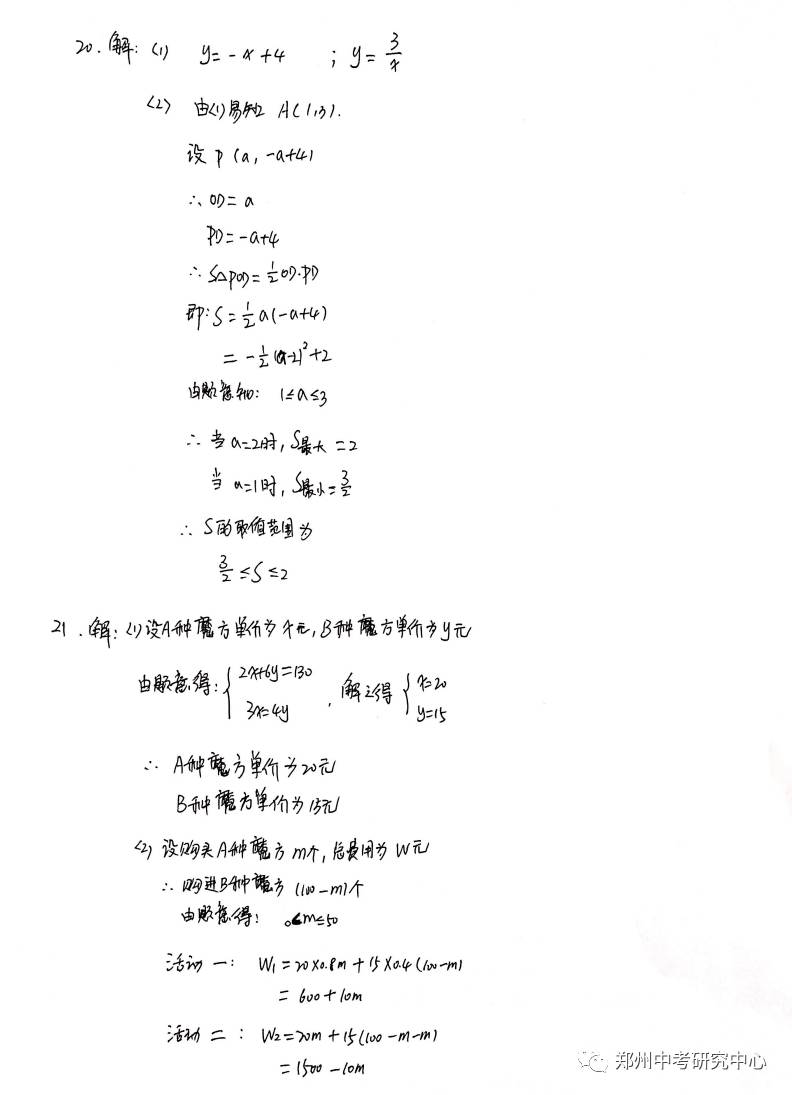 20. 解: (1) y=-x+4 ; y=3/x
(2) 由(1)易知 A(1,3).
设 P (a, -a+4)
∴ OD= a
PD=-a+4
∴ S△POD=1/2 OD·PD
即: S=1/2 a(-a+4)
= -1/2 (a-2)²+2
由题意知: 1≤a≤3
∴ 当 a=2时, S最大 =2
当 a=1时, S最小=3/2
∴ S的取值范围为
3/2 ≤S≤2
21. 解: (1) 设A种魔方单价为x元, B种魔方单价为y元
由题意得: {2x+6y=130, 3x=4y , 解之得 {x=20, y=15
∴ A种魔方单价为20元
B种魔方单价为15元
(2) 设购买A种魔方 m个, 总费用为 W元
∴ 购进B种魔方 (100-m)个
由题意得: 0<m≤50
活动一: W1 = 20×0.8m + 15×0.4(100-m)
= 600+10m
活动二: W2=20m+15(100-m-m)
=1500-10m
郑州中考研究中心